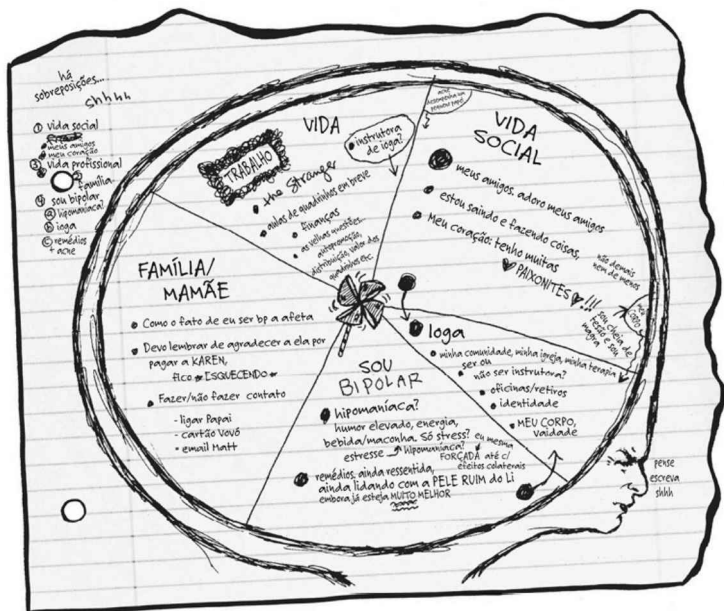 há
sobreposições...
shhhh
① vida social
• meus amigos
• meu coração
③ vida profissional
família
④ sou bipolar
ⓐ hipomaníaca?
ⓑ ioga
ⓒ remédios
+ acne
VIDA
TRABALHO
• the Stranger
• aulas de quadrinhos em breve
• finanças
• as velhas questões...
autopromoção,
distribuição, valor dos
quadrinhos etc.
• instrutora
de ioga?
acne
desempenha um
pequeno papel
VIDA
SOCIAL
• meus amigos. adoro meus amigos
• estou saindo e fazendo coisas,
não demais
nem de menos
• Meu coração: tenho muitas
♥ PAIXONITES ♥!!!
sou cheia de
tesão e sou
magra
FAMÍLIA/
MAMÃE
• Como o fato de eu ser bp a afeta
• Devo lembrar de agradecer a ela por
pagar a KAREN,
fico ESQUECENDO
• Fazer/não fazer contato
- ligar Papai
- cartão Vovó
- email Matt
Ioga
• minha comunidade, minha igreja, minha terapia
• ser ou
não ser instrutora?
• oficinas/retiros
• identidade
• MEU CORPO,
vaidade
SOU
BIPOLAR
• hipomaníaca?
humor elevado, energia,
bebida/maconha. Só stress?
estresse → hipomaníaca?
eu mesma
FORÇADA até c/
efeitos colaterais
• remédios, ainda ressentida,
ainda lidando com a PELE RUIM do Li
embora já esteja MUITO MELHOR
pense
escreva
shhh